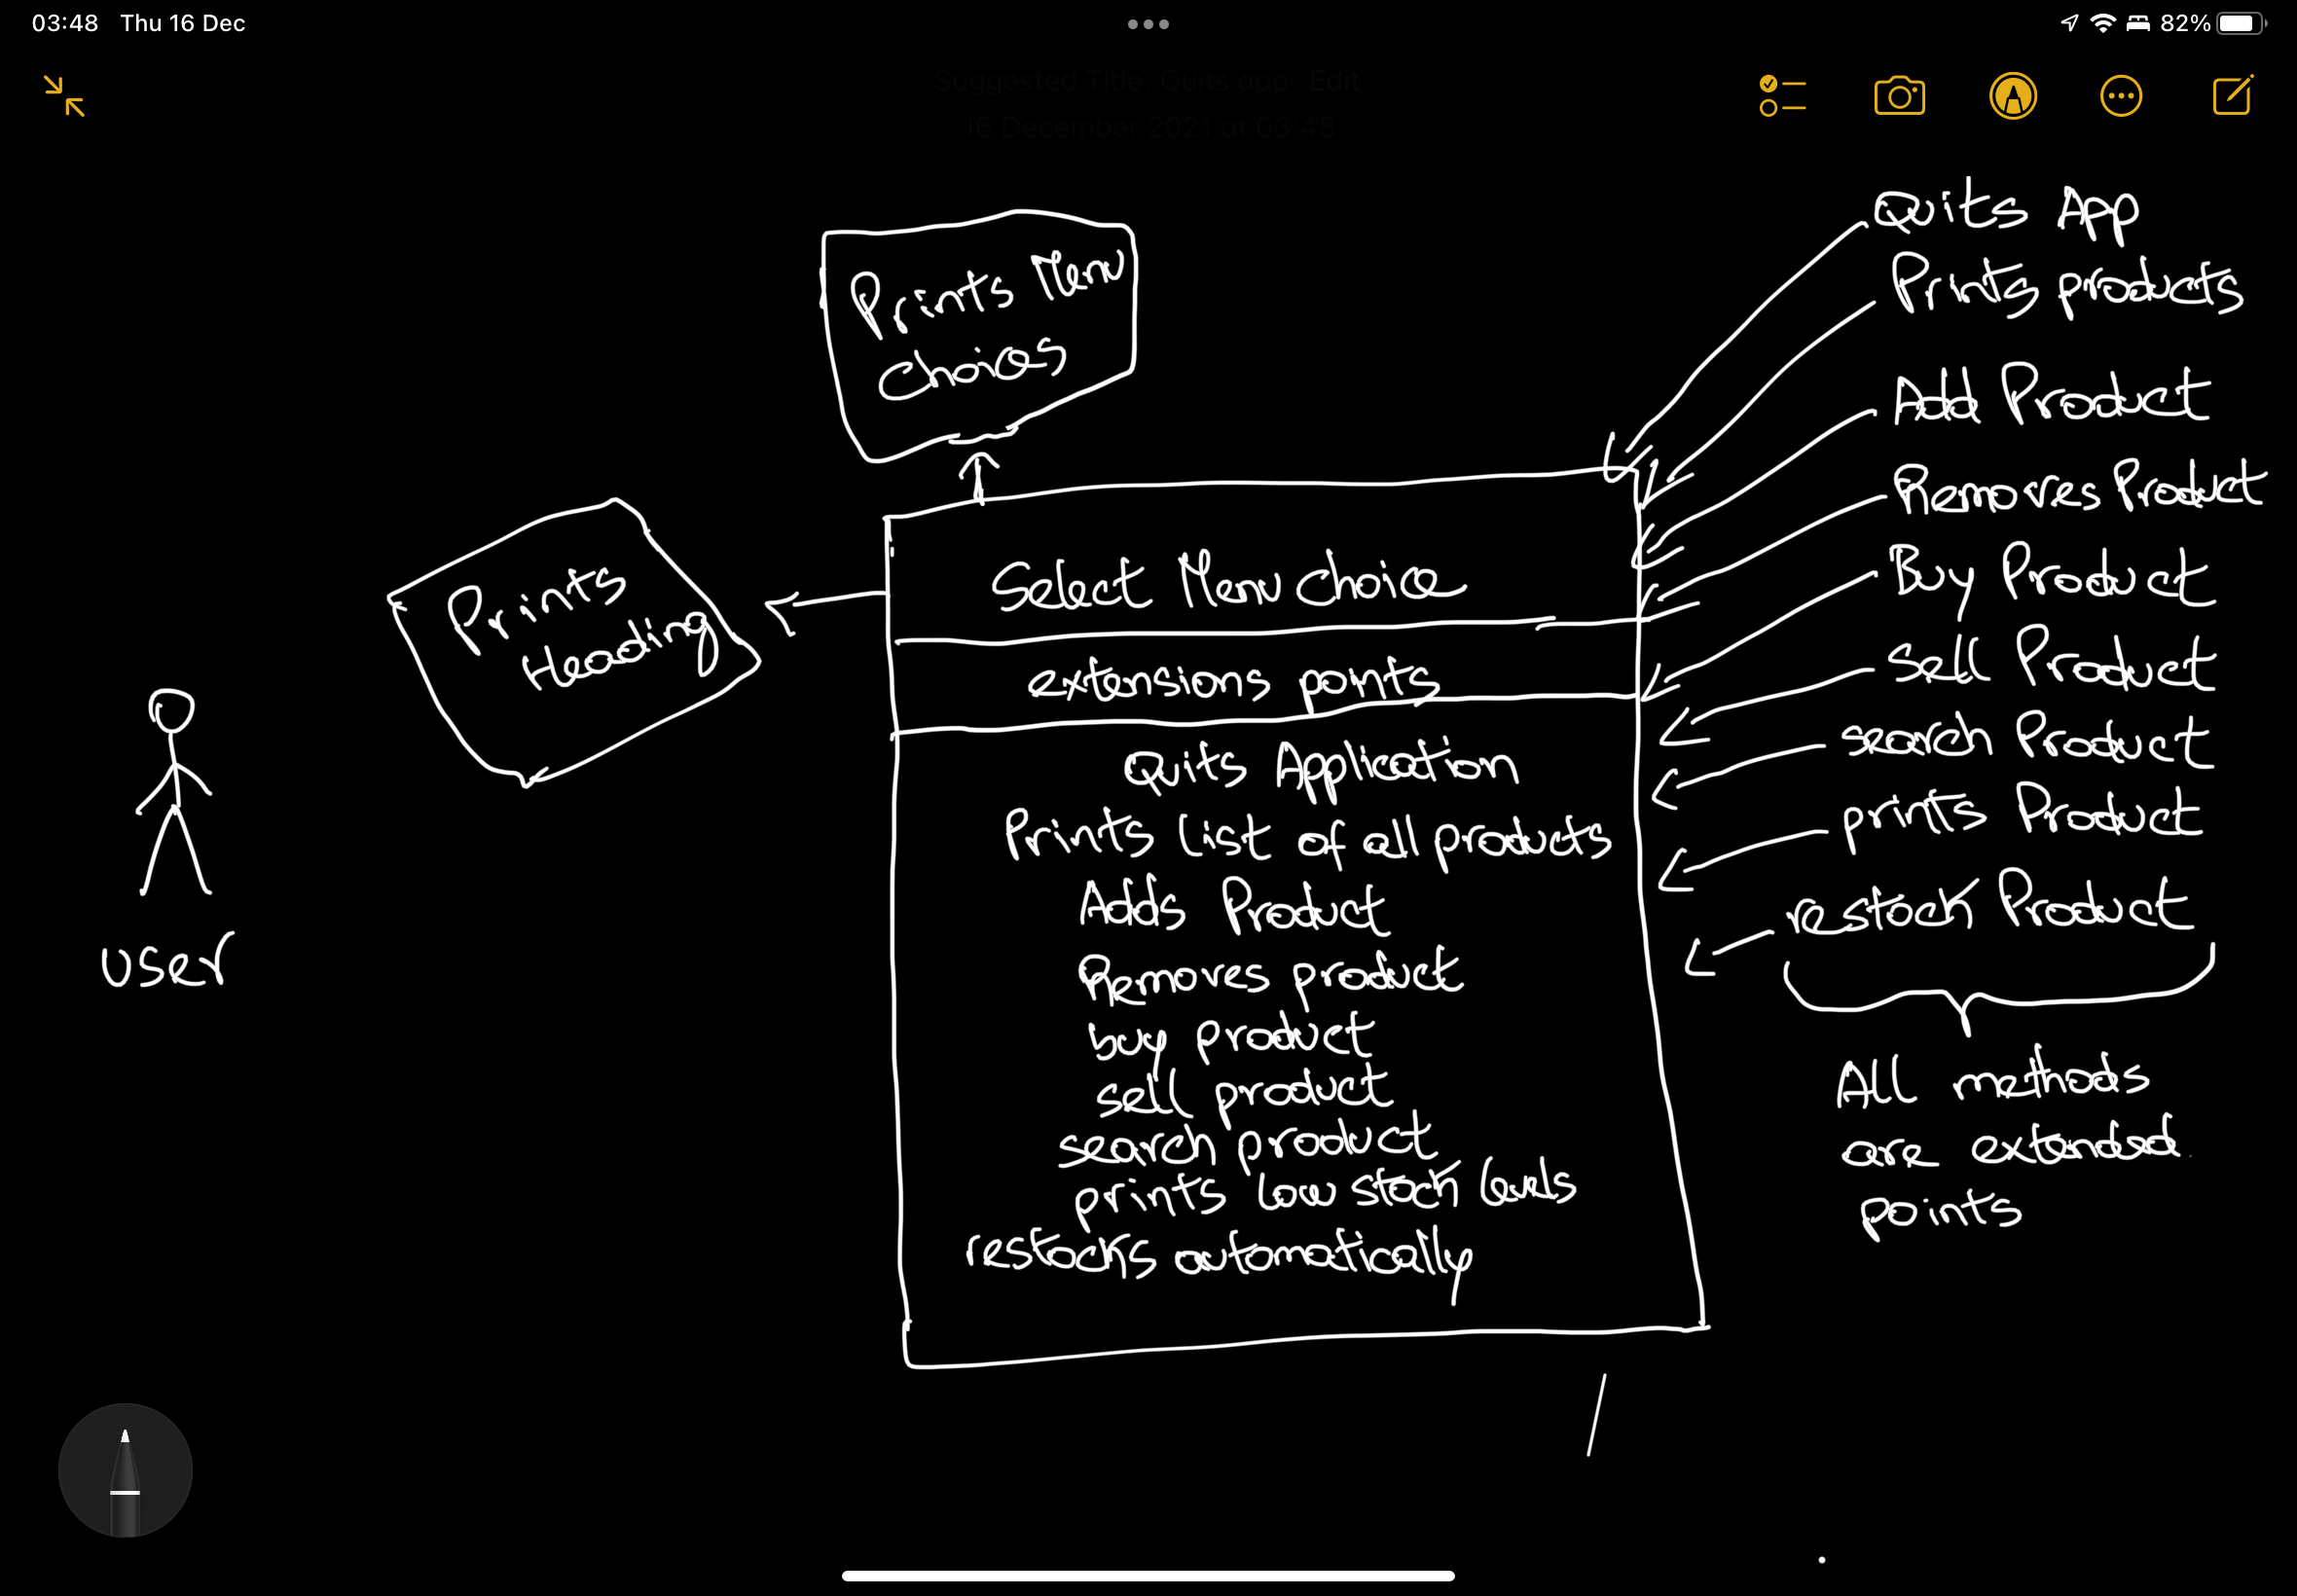 03:48 Thu 16 Dec
82%
Suggested Title: Quits app Edit
16 December 2021 at 03:48
Prints Menu
Choices
Prints
Heading
user
Select Menu choice
extensions points
Quits Application
Prints list of all products
Adds Product
Removes product
buy product
sell product
search product
prints low stock levels
restocks automatically
Quits App
Prints products
Add Product
Removes Product
Buy Product
Sell Product
search Product
prints Product
restock Product
All methods
are extended
points